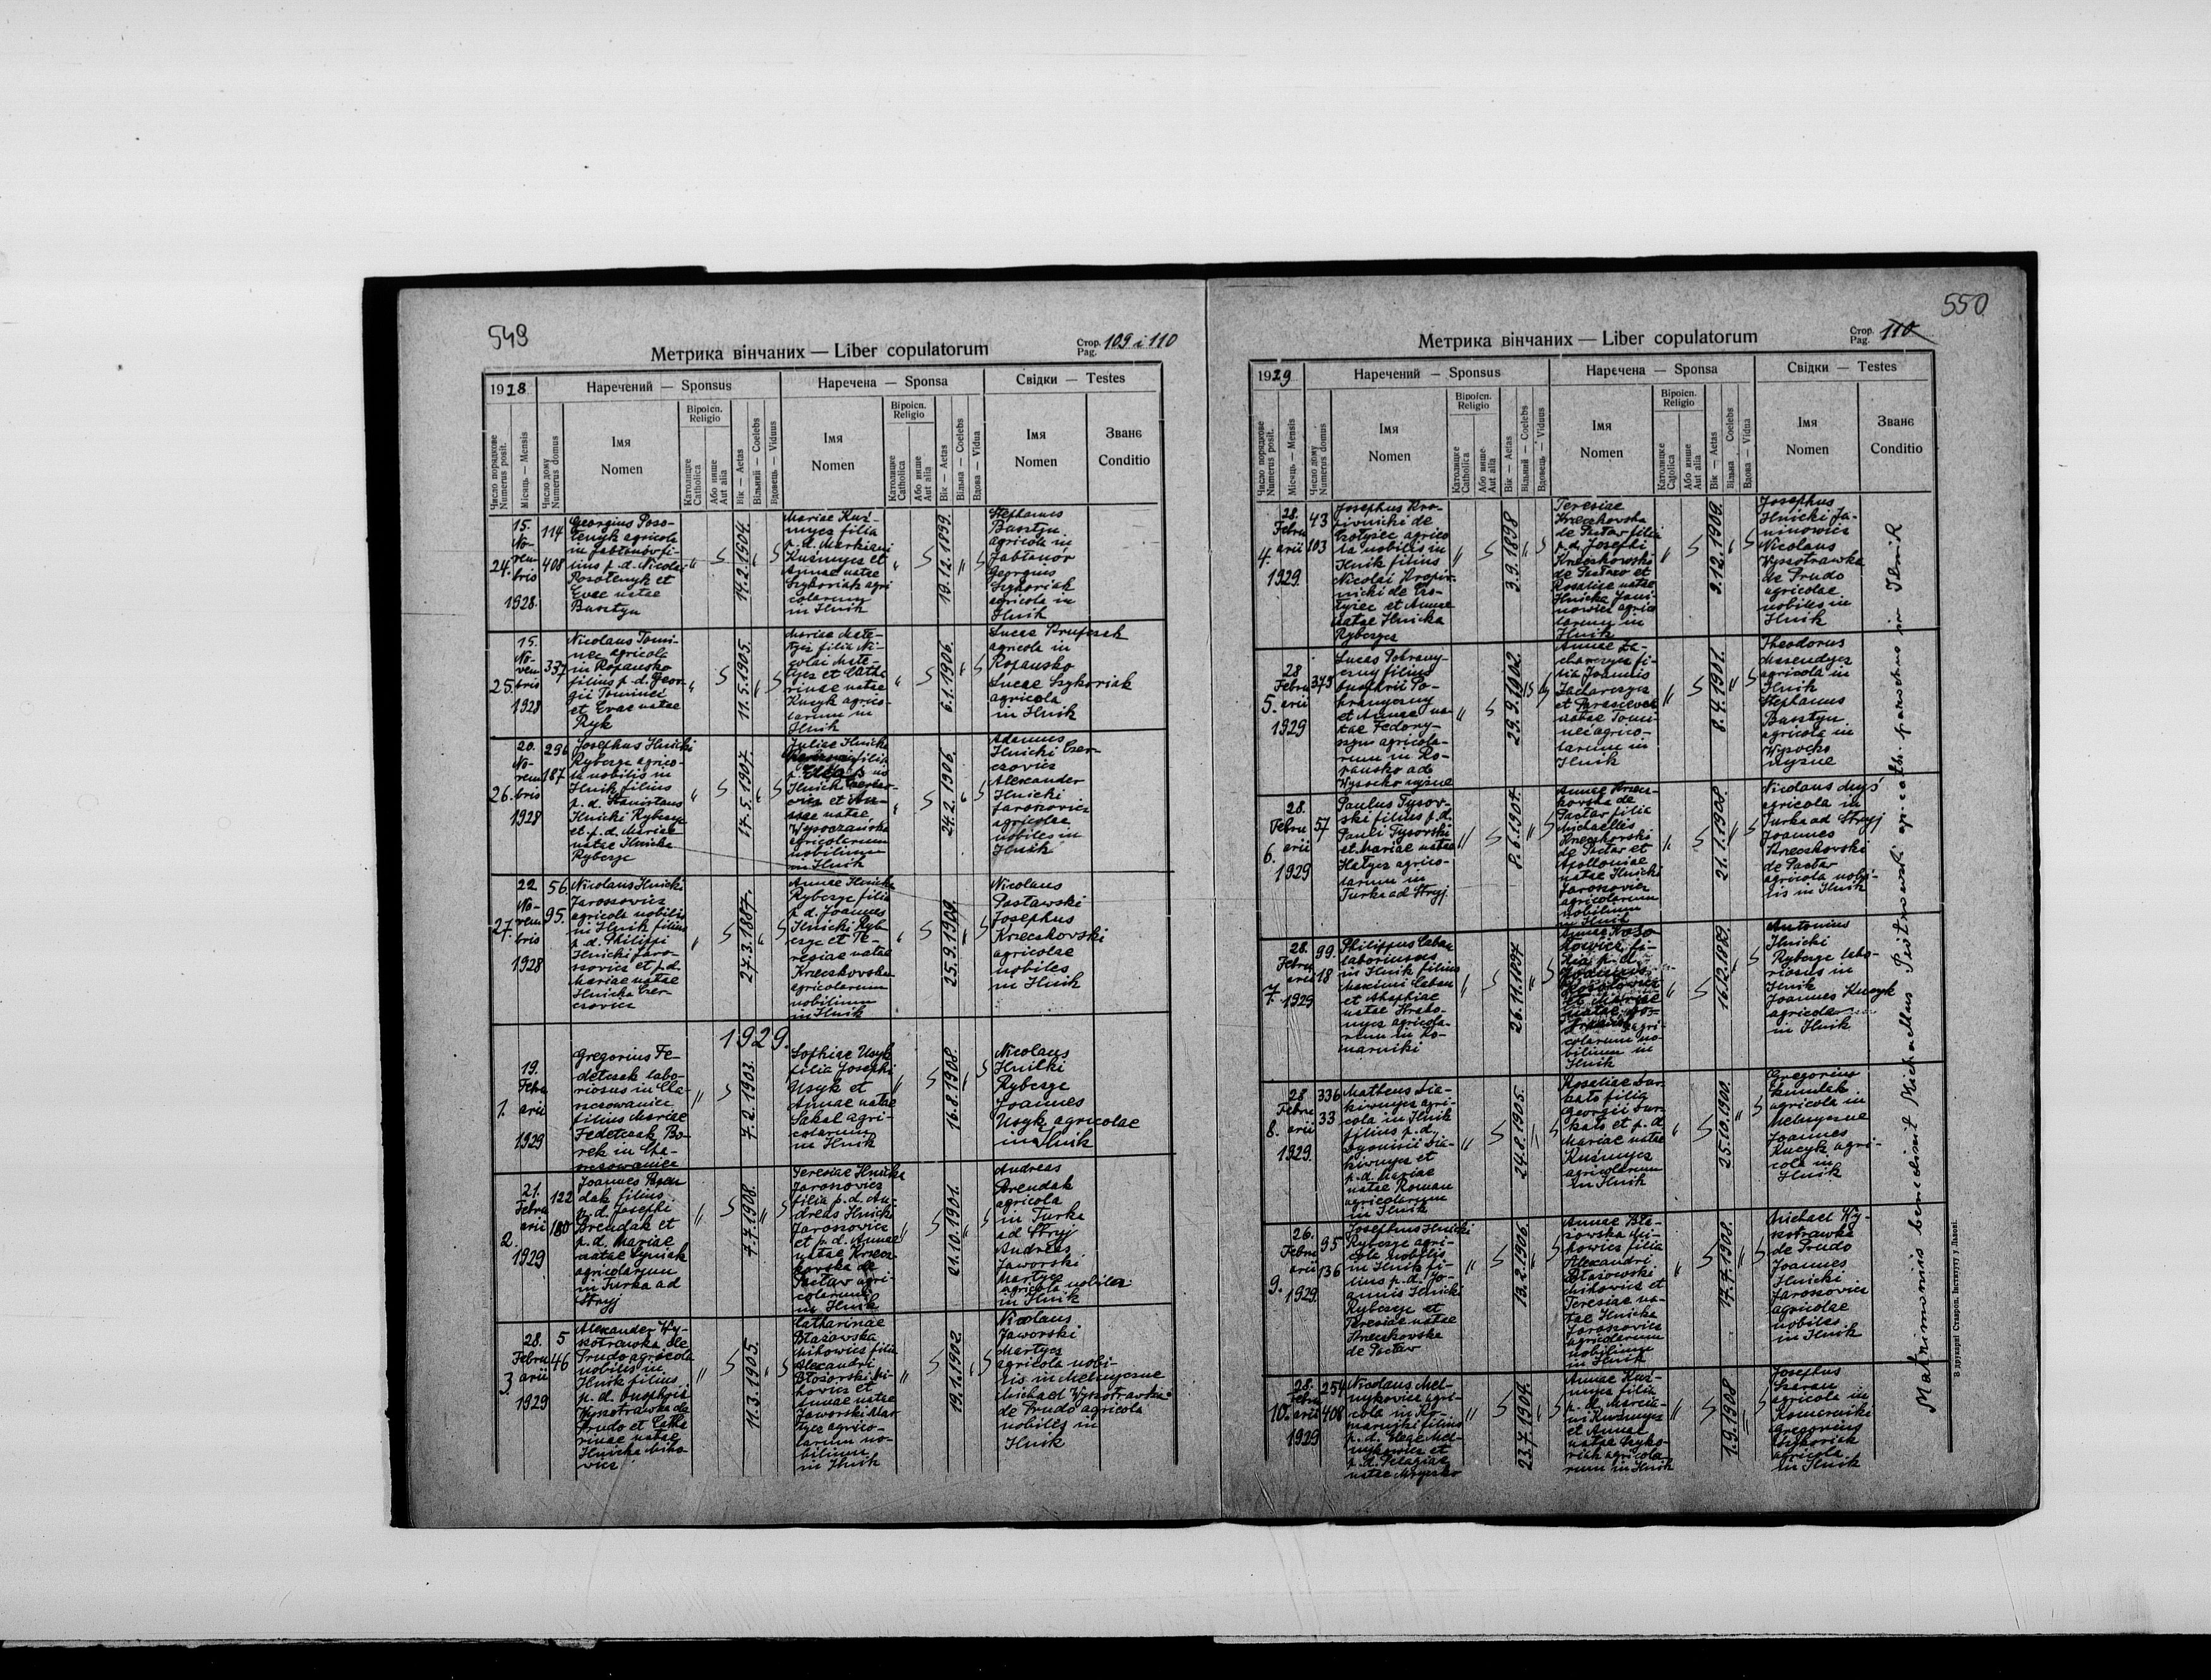 549
Метрика вінчаних — Liber copulatorum
Стор. Pag. 109 i 110
1928
Наречений — Sponsus
Наречена — Sponsa
Свідки — Testes
Число порядкове Numerus posit.
Місяць — Mensis
Число дому Numerus domus
Імя Nomen
Віроісп. Religio
Католицке Catholica
Або инше Aut alia
Вік — Aetas
Вільний — Coelebs
Вдовець — Viduus
Імя Nomen
Віроісп. Religio
Католицке Catholica
Або инше Aut alia
Вік — Aetas
Вільна — Coelebs
Вдова — Vidua
Імя Nomen
Званє Conditio
24.
15.
No-
vem
bris
1928.
114
408
Georgius Poso-
lenyk agricola
in Jabłonów fi-
lius p. d. Nicolai
Posolenyk et
Evae natae
Basztyn
14.2.1904.
Mariae Kuź-
mycz filia
p. d. Markiani
Kuźmycz et
Annae natae
Szykoriak agri
colarum
in Ilnik
19.12.1899.
Stephanus
Basztyn
agricola in
Jabłonów
Georgius
Szykoriak
agricola in
Ilnik
25.
15.
No-
vem
bris
1928
337
Nicolaus Tomi-
nec agricola
in Rozansko
filius p. d. Geor-
gii Tominec
et Evae natae
Ryk
11.5.1905.
Mariae Mate-
filia Ni-
colai
et Catha
rinae natae
Kucyk agrico-
larum in
Ilnik
6.1.1906.
Lucas
agricola in
Lucas Szykoriak
agricola
in Ilnik
26.
20.
No-
vem
bris
1928
296
187
Josephus Ilnicki
Rybczyc agrico-
la nobilis in
Ilnik filius
p. d. Stanislaus
Ilnicki Rybczyc
et p. d. Mariae
natae Ilnicka
Rybczyc
17.5.1907.
Juliae Ilnicka
filia
Ilnicki
et An-
nae natae
Wysoczańska
agricolarum
nobilium
in Ilnik
24.2.1906.
Adamus
Ilnicki Czer-
czowicz
Alexander
Ilnicki
Jarosowicz
agricolae
nobiles in
Ilnik
27.
22
No-
vem
bris
1928
56
95.
Nicolaus Ilnicki
Jarossowicz
agricola nobilis
in Ilnik filius
p. d. Philippi
Ilnicki Jaro-
ssowicz et p.d.
Mariae natae
Ilnicka Czer-
czowicz
27.3.1887.
Annae Ilnicka
Rybczyc filia
p. d. Joannes
Ilnicki Ryb-
czyc et Te-
resiae natae
Kreczkovska
agricolarum
nobilium
in Ilnik
25.9.1909.
Nicolaus
Pastawski
Josephus
Kreczkovski
agricolae
nobiles
in Ilnik
1929.
1.
19.
Febru
arii
1929
Gregorius Fe-
detczak labo-
riosus in
filius Mariae
Fedetczak
in
7.2.1903.
Sophiae Usyk
filia Josephi
Usyk et
Annae natae
Sakal agri-
colarum
in Ilnik
16.8.1908.
Nicolaus
Ilnicki
Rybczyc
Joannes
Usyk agricolae
in Ilnik
2.
21.
Febru
arii
1929
122
180
Joannes Bren
dak filius
p. d. Josephi
Brendak et
p. d. Mariae
natae
agricolarum
in Turka ad
Stryj
7.7.1908.
Teresiae Ilnicka
Jarosowicz
filia p. d. An-
dreas Ilnicki
Jarossowicz
et p. d. Annae
natae Krecz-
kovska de
Pactav agri-
colarum
in Ilnik
21.10.1901.
Andreas
Brendak
agricola
in Turka
ad Stryj
Andreas
Jaworski
Martycz
agricola nobiles
in Ilnik
3
28.
Febru
arii
1929
5
46
Alexander Wy-
szotrawka de
Prudo agricola
nobilis in
Ilnik filius
p. d. Onuphrii
Wyszotrawka de
Prudo et Catha
rinae natae
Ilnicka Miko-
wicz
11.3.1905.
Catharinae
Błażovska
Mikowicz filia
Alexandri
Błażovski Mi-
kowicz et
Annae natae
Jaworski Mar
tycz agrico-
larum no-
bilium
in Ilnik
19.1.1902
Nicolaus
Jaworski
Martycz
agricola nobi-
lis in Melnyczne
Michael Wyszotrawka
de Prudo agricola
nobilis in
Ilnik
550
Метрика вінчаних — Liber copulatorum
Стор. Pag. 110
1929
Наречений — Sponsus
Наречена — Sponsa
Свідки — Testes
Число порядкове Numerus posit.
Місяць — Mensis
Число дому Numerus domus
Імя Nomen
Віроісп. Religio
Католицке Catholica
Або инше Aut alia
Вік — Aetas
Вільний — Coelebs
Вдовець — Viduus
Імя Nomen
Віроісп. Religio
Католицке Catholica
Або инше Aut alia
Вік — Aetas
Вільна — Coelebs
Вдова — Vidua
Імя Nomen
Званє Conditio
4.
28.
Febru
arii
1929.
43
103
Josephus Kro-
pivnicki de
agrico
la nobilis in
Ilnik filius
Nicolai Kropiv-
nicki de
et Annae
natae Ilnicka
Rybczyc
3.9.1898
Teresiae
Kreczkovska
de Pactav filia
p. d. Josephi
Kreczkowski
de Pactav et
Rosaliae natae
Ilnicka Jani-
nowicz agrico
larum in
Ilnik
9.12.1909.
Josephus
Ilnicki Ja-
ninowicz
Nicolaus
Wyszotrawka
de Prudo
agricolae
nobiles in
Ilnik
5.
28
Febru
arii
1929
379
Lucas Pohrany-
czny filius
Onuphrii Po-
hranyczny
et Annae na-
tae Fedory-
szyn agricola-
rum in
ad
Wysocko nyżne
29.9.1902.
Annae Za-
charczyc fi-
lia Joannis
Zacharczyc
et Parascevae
natae Tomi-
nec agrico-
larum in
Ilnik
8.4.1901.
Theodorus
agricola in
Ilnik
Stephanus
Basztyn
agricola in
Wysocko
nyżne
6.
28.
Febru
arii
1929
57
Paulus Tysov-
ski filius p. d.
Pauli Tysovski
et Mariae natae
Hałycz agrico-
larum in
Turka ad Stryj
8.6.1907.
Annae Krecz-
kovska de
Pactav filia
Michaelis
Kreczkovski
de Pactav et
Apolloniae
natae Ilnicki
Jarossovicz
agricolarum
nobilium
in Ilnik
21.1.1908.
Nicolaus
agricola in
Turka ad Stryj
Joannes
Kreczkovski
de Pactav
agricola nobi-
lis in Ilnik
7.
28.
Febru
arii
1929
99
18
Philippus Caban
laboriosus
in Ilnik filius
Maximi Caban
et Ahaphiae
natae
agricola-
rum in Ko-
marniki
26.11.1897
Annae
fi-
lia p. d.
et Mariae
natae
agri-
colarum no-
bilium in
Ilnik
16.12.1889.
Antonius
Ilnicki
Rybczyc labo-
riosus in
Ilnik
Joannes Kucyk
agricola
in Ilnik
8.
28
Febru
arii
1929.
336
33
Matheus Dia-
kivnycz agri-
cola in Ilnik
filius p. d.
Dyonisii Dia-
kivnycz et
p. d. Mariae
natae Roman
agricolarum
in Ilnik
24.8.1905.
Rosaliae Dur-
kato filia
Georgii Dur-
kato et p. d.
Mariae natae
Kuźmycz
agricolarum
in Ilnik
25.10.1900.
Gregorius
agricola in
Melnyczne
Joannes
Kucyk agri-
cola in
Ilnik
9.
26.
Febru
arii
1929.
95
136
Josephus Ilnicki
Rybczyc agri-
cola nobilis
in Ilnik fi-
lius p. d. Jo-
annis Ilnicki
Rybczyc et
Teresiae natae
Kreczkovska
de Pactav
13.2.1906.
Annae Bła-
żovska Mi-
kowicz filia
Alexandri
Błażowski
Mikowicz et
Teresiae na-
tae Ilnicka
Jarossovicz
agricolarum
nobilium
in Ilnik
17.7.1908.
Michael Wy-
szotrawka
de Prudo
Joannes
Ilnicki
Jarossovicz
agricolae
nobiles
in Ilnik
10.
28.
Febru
arii
1929
254
408
Nicolaus Mel-
nykowicz agri-
cola in Ko-
marniki filius
p. d. Eliae Mel-
nykowicz et
p. d. Pelagiae
natae
23.7.1904.
Annae Kuź-
mycz filia
p. d. Marcia-
ni Kuźmycz
et Annae
natae Szyko-
riak agricola-
rum in Ilnik
1.9.1908
Josephus
Szaran
agricola in
Komarniki
Gregorius
Szykoriak
agricola
in Ilnik
Matrimoniis benedixit Michaellus Piotrowski gr. cath. parochus in Ilnik
В друкарні Ставроп. Інституту у Львові.